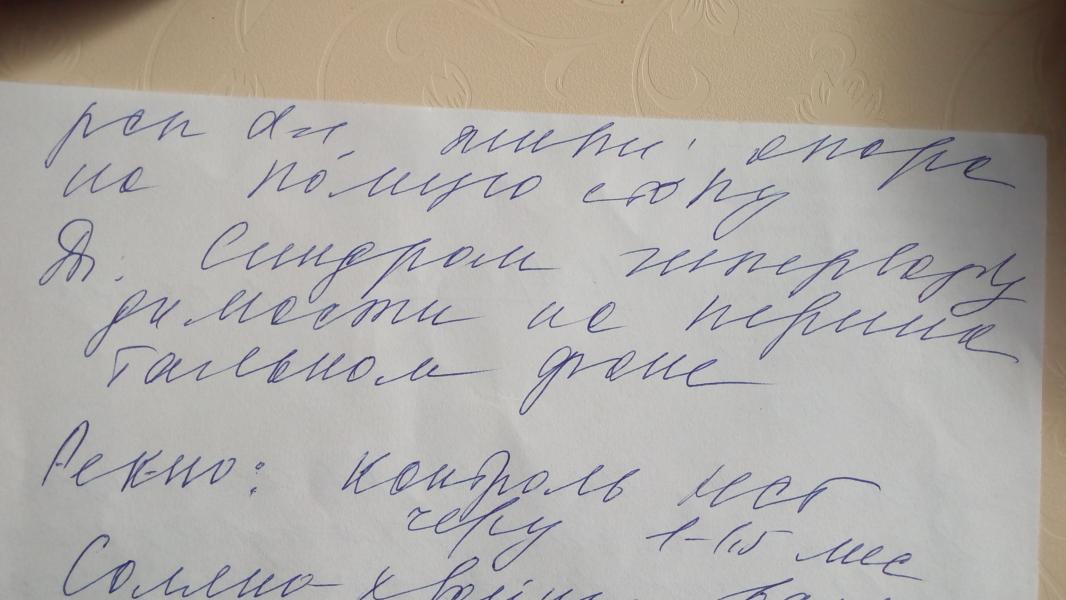 опора
на полную стопу
Дз. Синдром гипервозбу
димости на перина
тальном фоне
Рек-но: контроль НСГ
через 1-1,5 мес
Соляно-хвойные